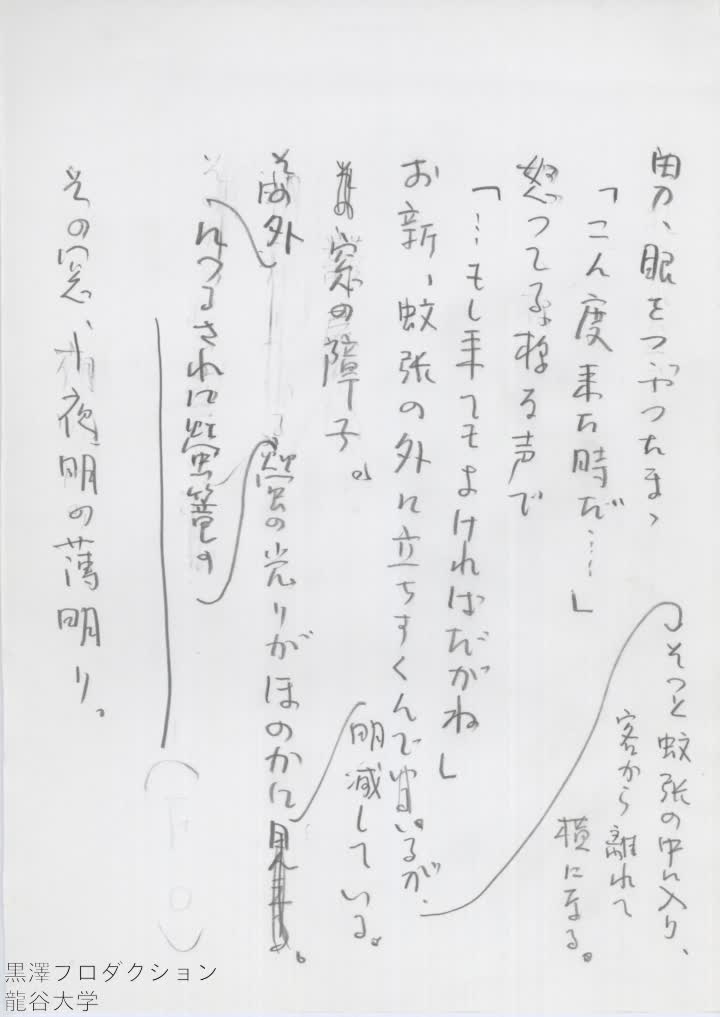 男、眼をつぶつたまゝ
「こん度来た時だ……」
怒つてる様な声で
「…もし来てもよければだがね」
お新、蚊張の外に立ちすくんでいるが、
そつと蚊張の中に入り、
客から離れて
横になる。
窓の障子。
その外
につるされた螢篭の
螢の光りがほのかに
明滅している。
(F・O)
その窓、夜明の薄明り。
黒澤プロダクション
龍谷大学